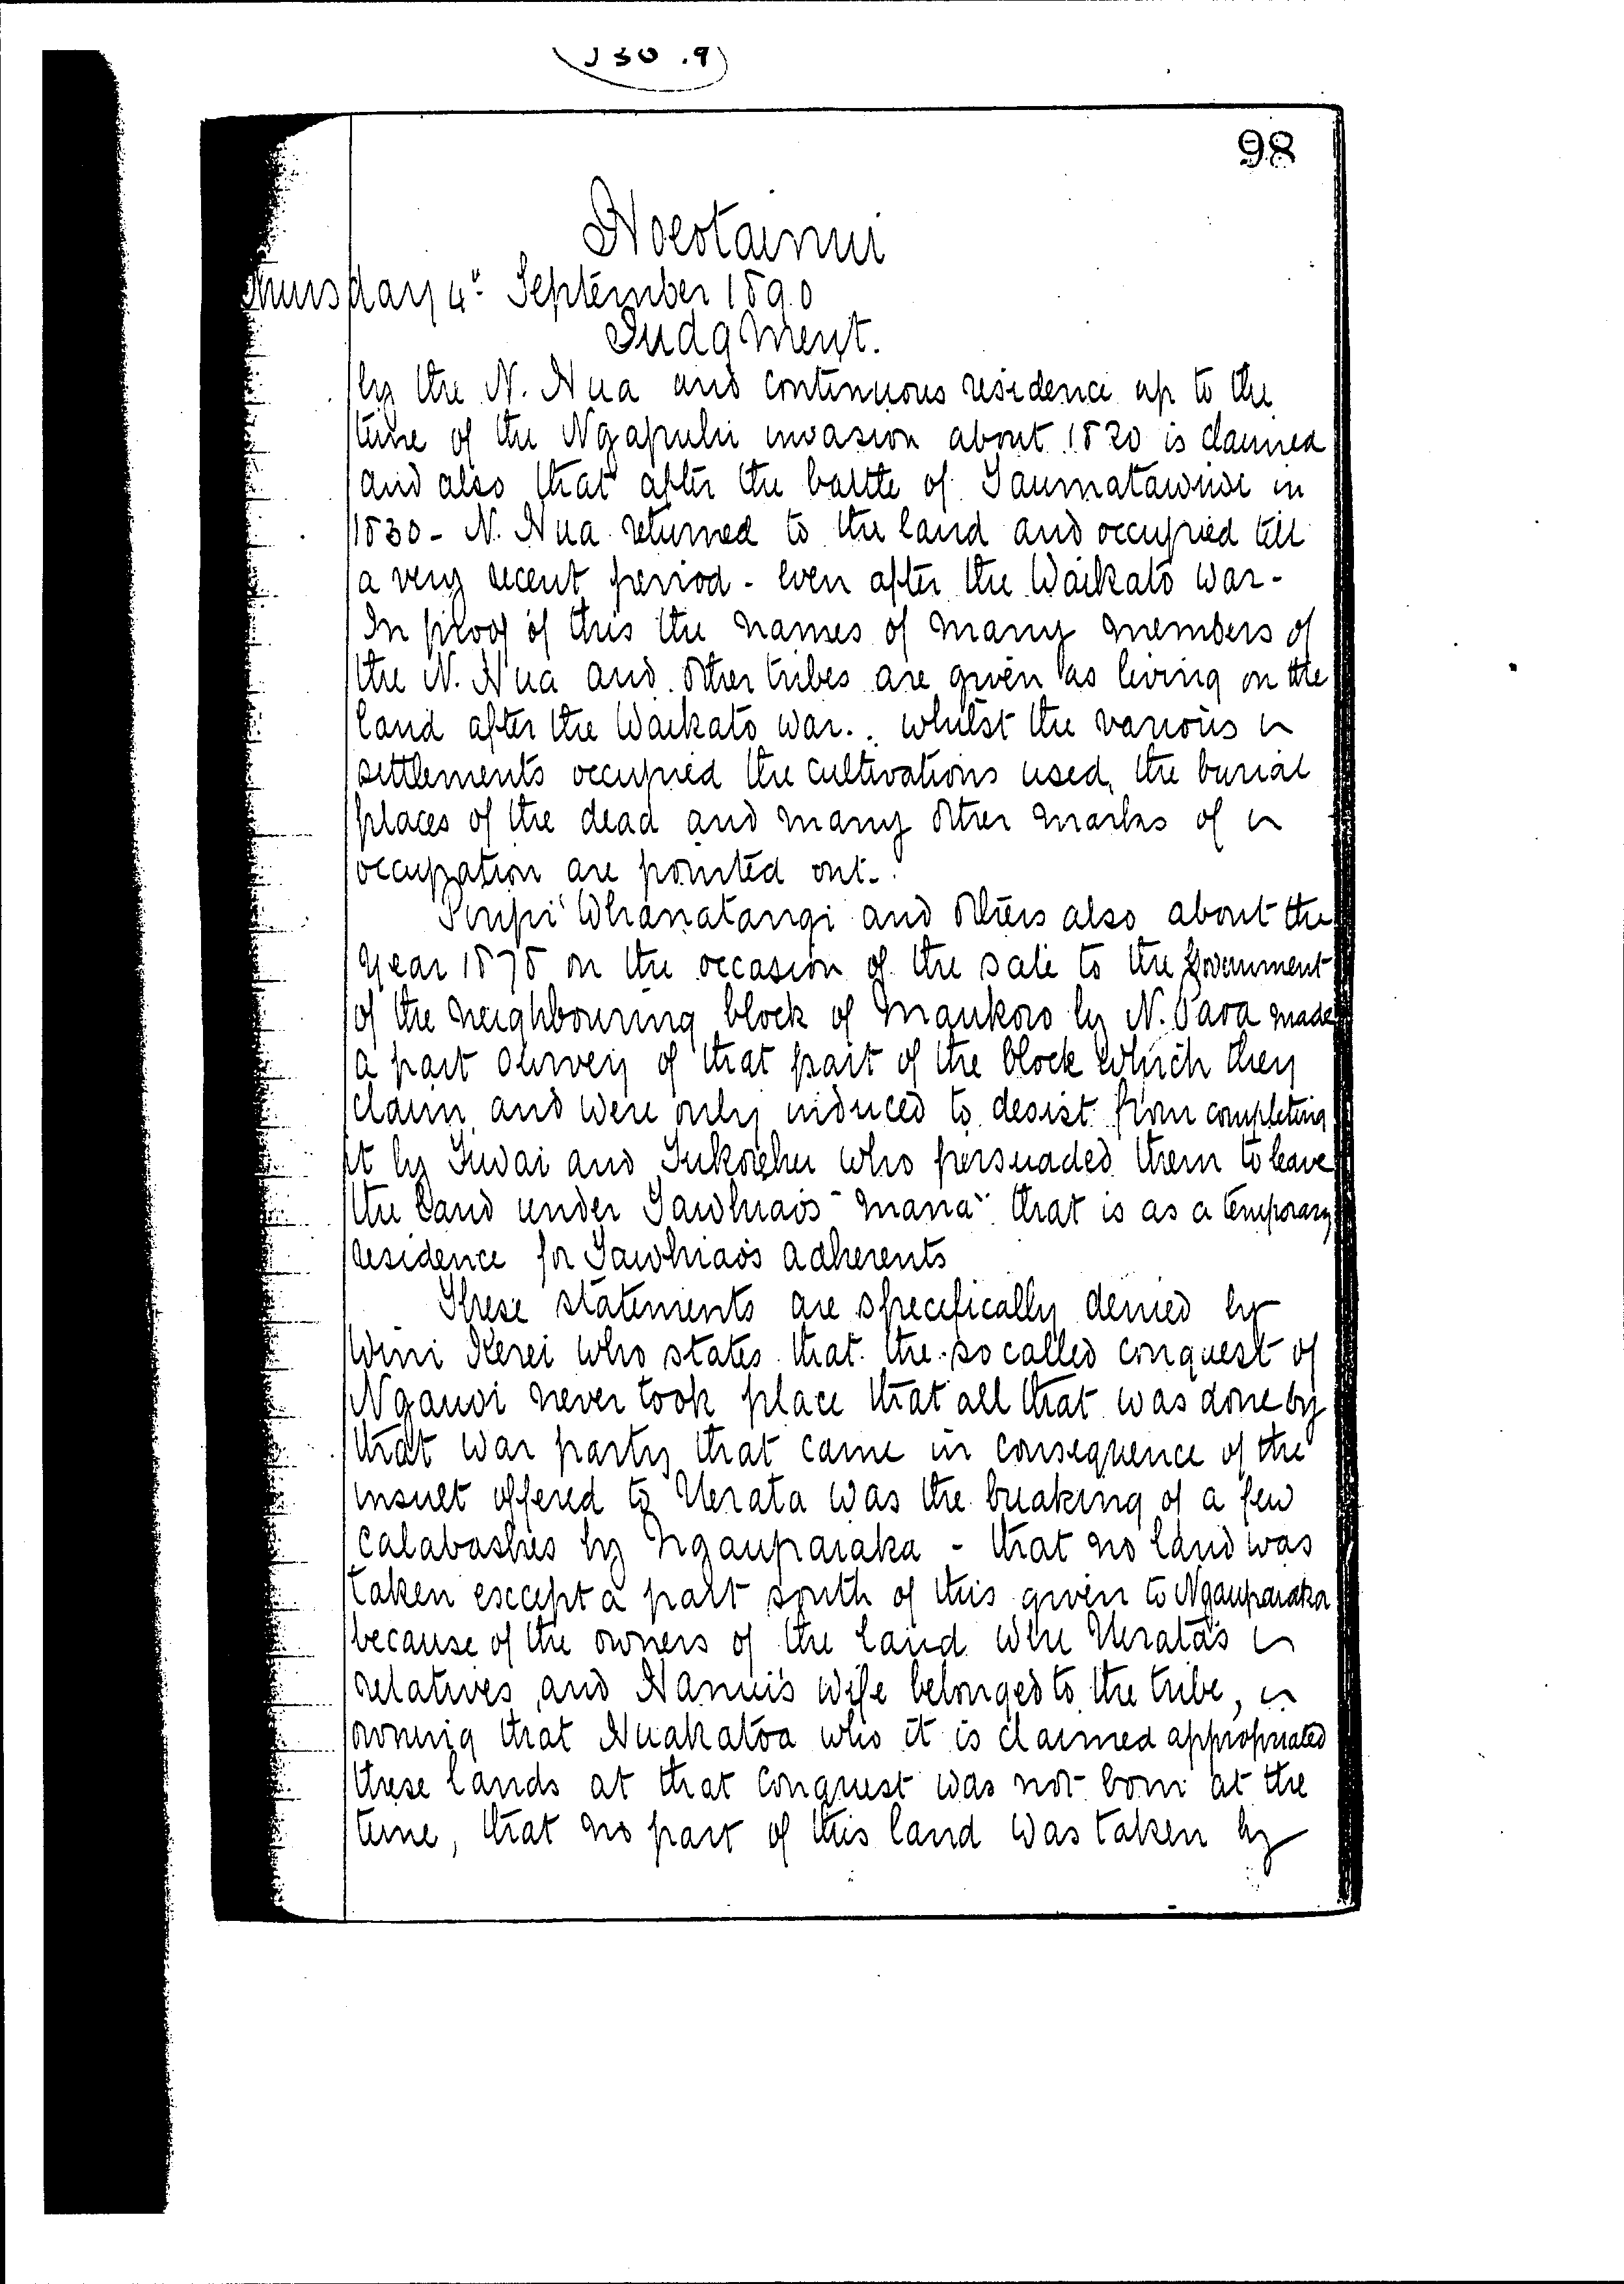 J30.9
98
Hoeotainui
Thursday 4" September 1890
Judgment.
by the N. Hua and continuous residence up to the
time of the Ngapuhi invasion about 1820 is claimed
and also that after the battle of Taumatawiwi in
1830 - N. Hua returned to the land and occupied till
a very recent period - even after the Waikato War -
In proof of this the names of many members of
the N. Hua and other tribes are given as living on the
land after the Waikato war. whilst the various
settlements occupied the cultivations used, the burial
places of the dead and many other marks of
occupation are pointed out.
Piripi Whanatangi and others also about the
year 1878 on the occasion of the sale to the Government
of the neighbouring block of Maukoro by N. Paoa made
a part survey of that part of the block which they
claim, and were only induced to desist from completing
it by Tuwai and Tukorehu who persuaded them to leave
the land under Tawhiao's "mana" that is as a temporary
residence for Tawhiao's adherents
These statements are specifically denied by
Wini Kerei who states that the so called conquest of
Ngauoi never took place that all that was done by
that war party that came in consequence of the
insult offered to Uerata was the breaking of a few
calabashes by Ngauparaka - that no land was
taken except a part south of this given to Ngauparaka
because of the owners of the land were Uerata's
relatives, and Hanui's wife belonged to the tribe,
owning that Huakatoa who it is claimed appropriated
these lands at that conquest was not born at the
time, that no part of this land was taken by